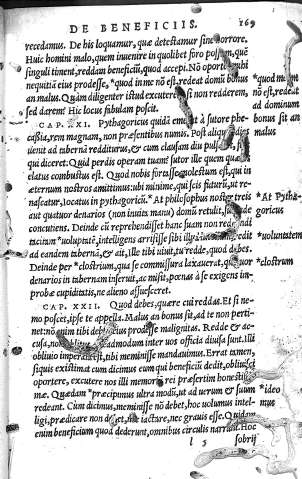 DE BENEFICIIS. 169
recedamus. De his loquamur, quæ detestamur sine horrore.
Huic homini malo, quem inuenire in quolibet foro possum, quē
singuli timent, reddam beneficiū, quod accepi. Nō oportet
nequitiā eius prodesse, *quod in me nō est, redeat domū bonus
an malus. Quàm diligenter istud excuterē si non redderem,
sed darem! Hic locus fabulam poscit.
*quod me
nō est, redeat
ad dominum
bonus sit an
malus
CAP. XXI. Pythagoricus quidā emerat à sutore phæ
casia, rem magnam, non præsentibus numis. Post aliquot dies
uenit ad tabernā redditurus, & cum clausam diu pulsaret,
qui diceret: Quid perdis operam tuam? sutor ille quem quæris
elatus combustus est. Quod nobis fortasse molestum est, qui in
æternum nostros amittimus: tibi minime, qui scis futurū, ut re-
nascatur, iocatus in pythagoricū. *At philosophus noster treis
aut quatuor denarios (non inuita manu) domū retulit,
concutiens. Deinde cū reprehendisset hanc suam non reddendi
tacitam *uoluptatē, intelligens arrisisse sibi illud
ad eandem tabernā, & ait, Ille tibi uiuit, tu redde, quod debes.
Deinde per *clostrium, qua se commissura laxauerat, quatuor
denarios in tabernam inseruit, ac misit, pœnas à se exigens im-
probæ cupiditatis, ne alieno assuesceret.
*At Pytha
goricus
*uoluntatem
*clostrum
CAP. XXII. Quod debes, quære cui reddas. Et si ne-
mo poscet, ipse te appella. Malus an bonus sit, ad te non perti-
net: nō enim tibi prodesse malignitas. Redde & ac-
cusa, non oblitus admodum inter uos officia diuisa sunt. Illi
obliuio imperata est, tibi meminisse mandauimus. Errat tamen,
siquis existimat cum dicimus eum qui beneficiū dedit, obliuisci
oportere, excutere nos illi memoriā rei præsertim honestissi-
mæ. Quædam *præcipimus ultra modū, ut ad uerum & suum
redeant. Cùm dicimus, meminisse nō debet, hoc uolumus intel-
ligi, prædicare non debet, nec iactare, nec grauis esse. Quidam
enim beneficium quod dederunt, omnibus circulis narrant. Hoc
*ideo
mus
l 5 sobrij